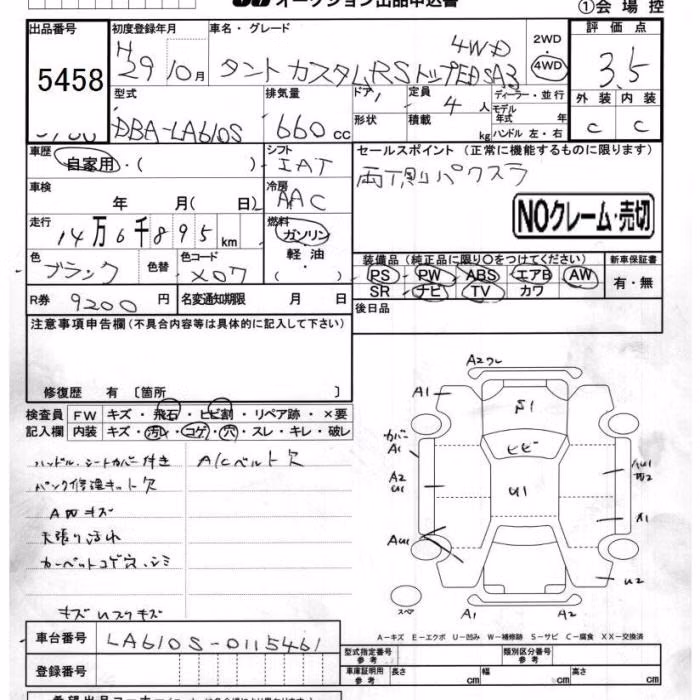 オークション出品申込書
①会場控
出品番号
5458
初度登録年月
H29 10月
車名・グレード
4WD
タント カスタム RS トップED SAⅢ
2WD
・
4WD
評価点
3.5
外装 内装
C C
型式
DBA-LA610S
排気量
660 cc
ドア
定員
4 人
ディーラー・並行
モデル年式 年
形状
積載 kg
ハンドル 左・右
車歴
自家用・( )
シフト
IAT
セールスポイント (正常に機能するものに限ります)
両側パワスラ
NOクレーム・売切
車検
年 月( 日)
冷房
AAC
走行
14万6千895km
燃料
ガソリン
軽油
( )
色
ブラック
色替
色コード
X07
装備品 (純正品に限り○をつけてください)
新車保証書
PS・PW・ABS・エアB・AW
SR・ナビ・TV・カワ
有・無
R券 9200円
名変通知期限 月 日
後日品
注意事項申告欄 (不具合内容等は具体的に記入して下さい)
修復歴 有 〔箇所 〕
検査員
記入欄
FW キズ・飛石・ヒビ割・リペア跡・×要
内装 キズ・汚れ・コゲ・穴・スレ・キレ・破レ
ハンドル、シートカバー付き
A/Cベルト欠
パンク修理キット欠
AWキズ
天張り汚れ
カーペットコゲ穴、シミ
キズUスクキズ
A2ワレ
A1
カバー
A1
A2
U1
ヒビ
U1
A1
U2
スペア
A1
A2
A-キズ E-エクボ U-凹み W-補修跡 S-サビ C-腐食 XX-交換済
車台番号
LA610S-0115461
登録番号
型式指定番号
参考
類別区分番号
参考
車庫証明用
参考
長さ cm
幅 cm
高さ cm